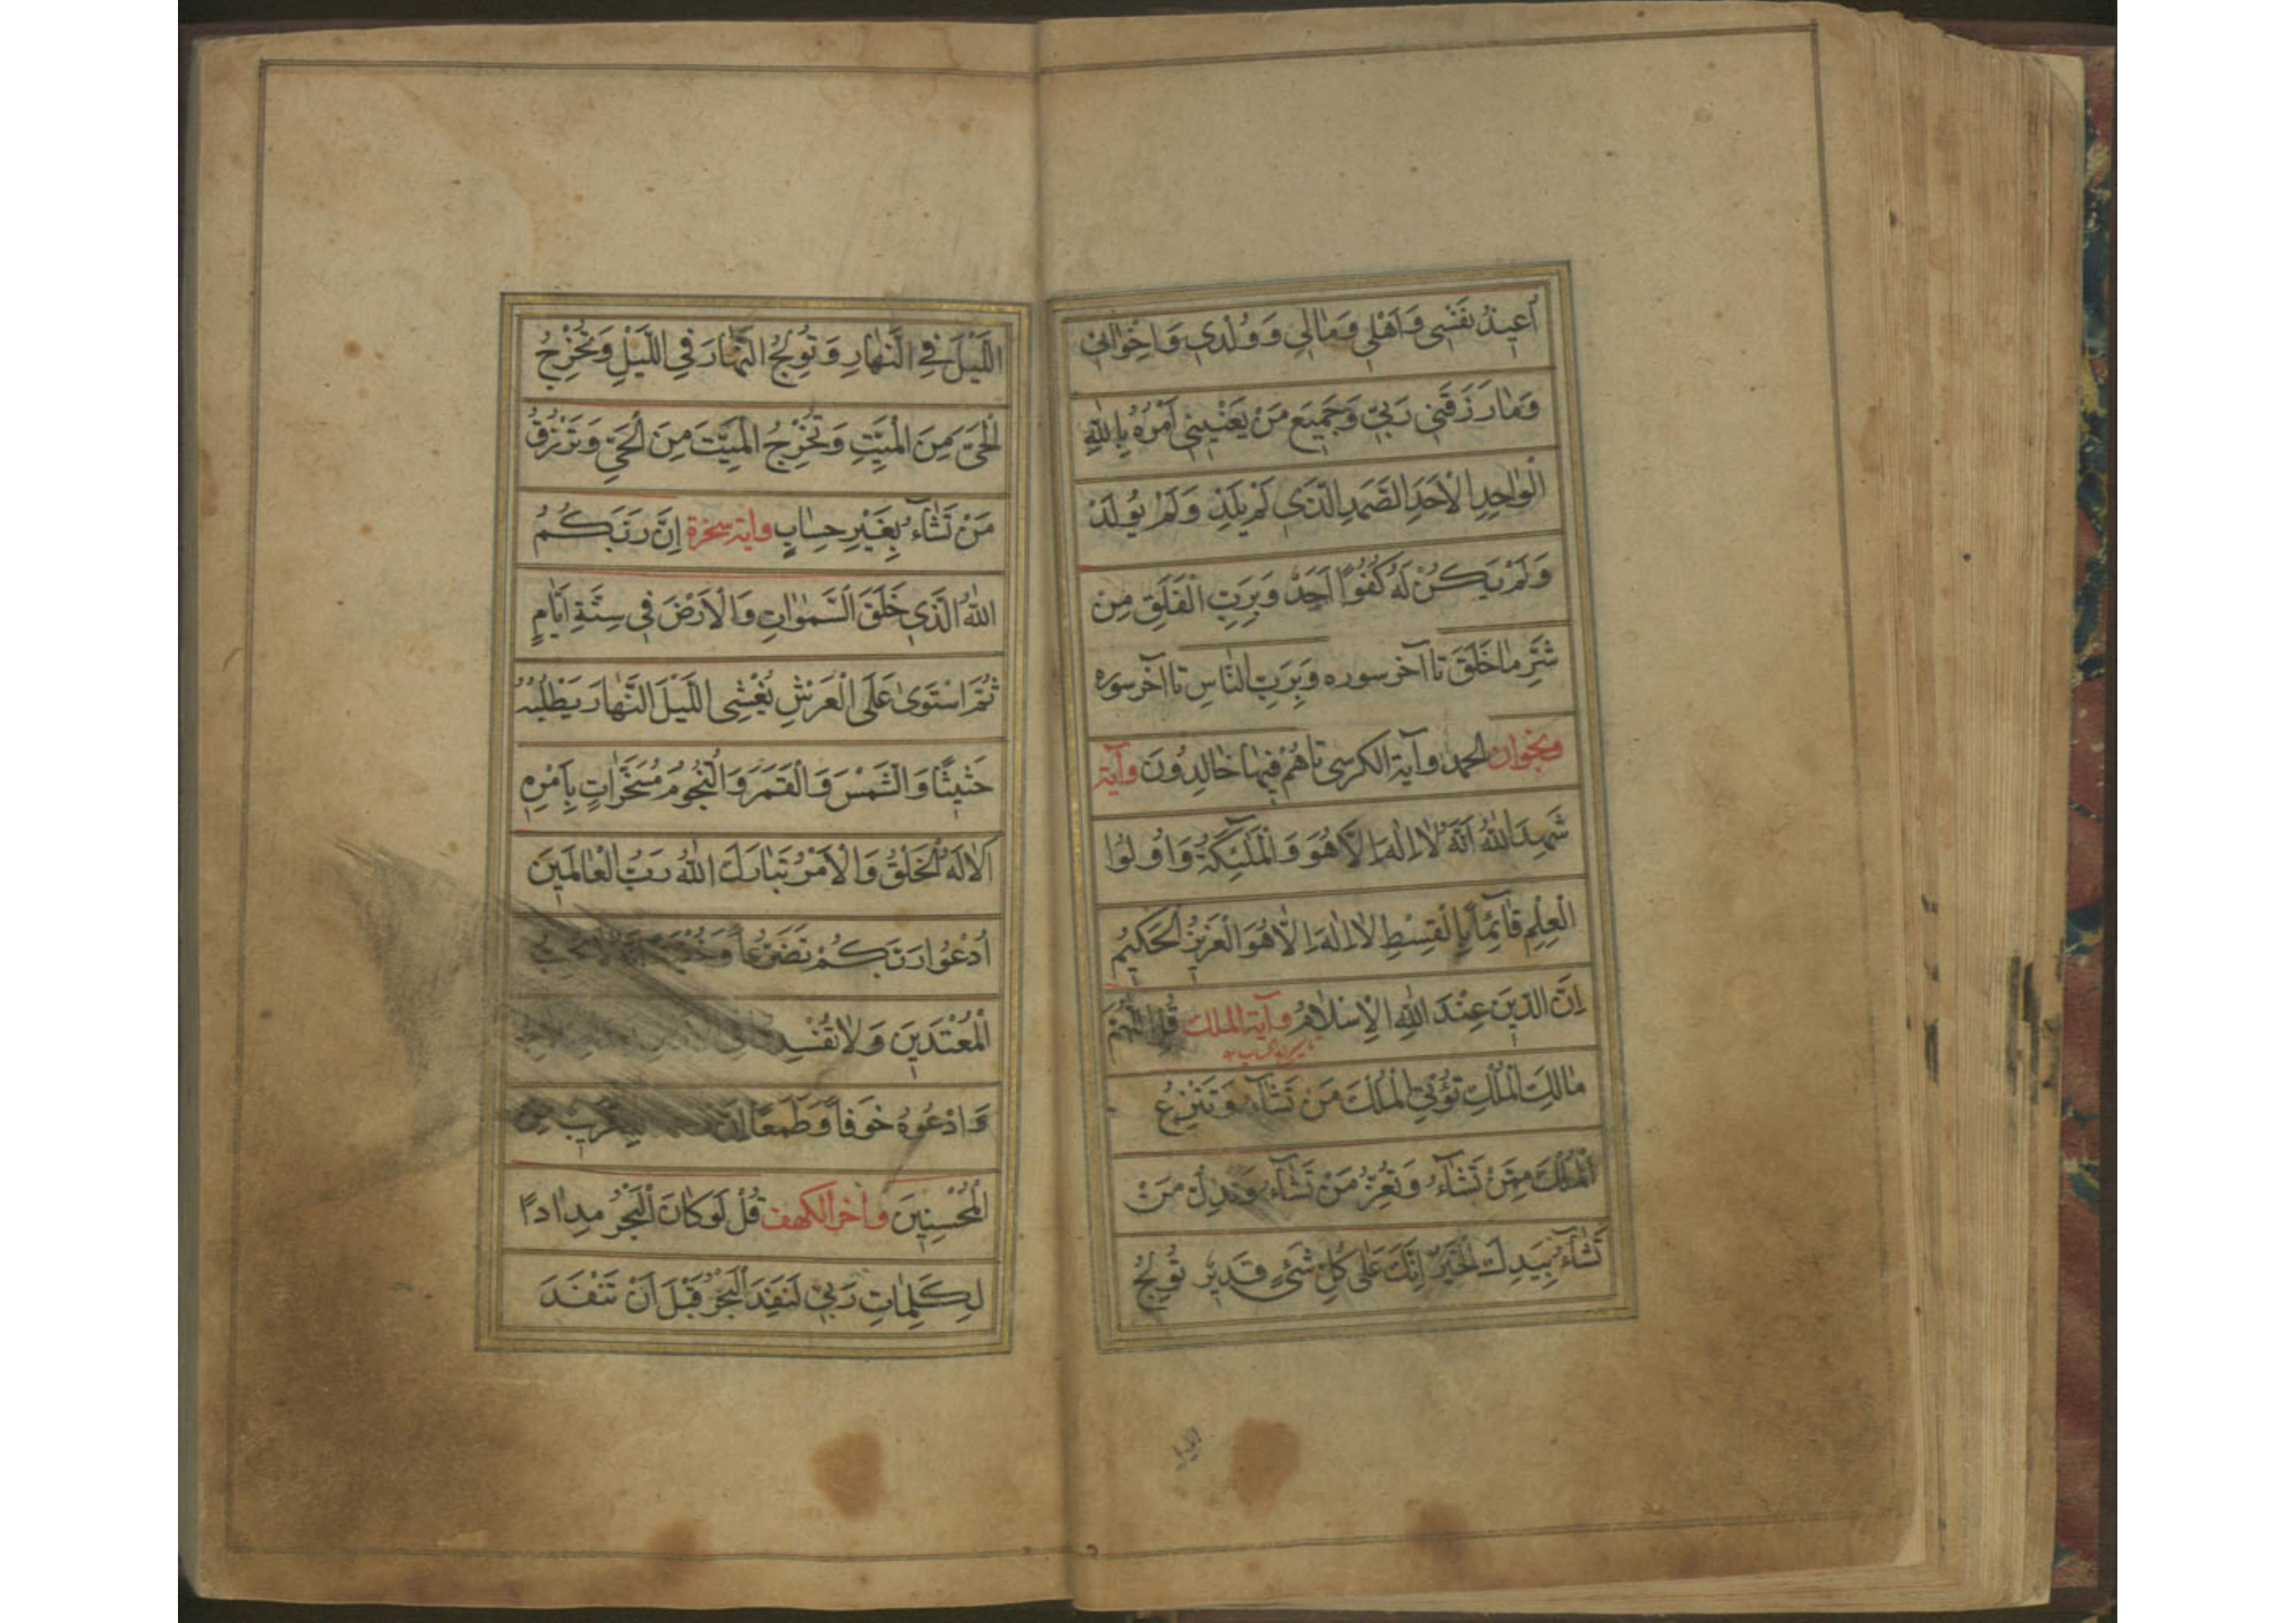 اُعيذُ نَفْسي وَاَهْلي وَمٰالي وَوُلْدي وَاِخْوٰاني
وَمٰا رَزَقَني رَبّي وَجَميعَ مَنْ يَعْنيني اَمْرُهُ بِاللهِ
الْوٰاحِدِ الْاَحَدِ الصَّمَدِ الَّذي لَمْ يَلِدْ وَلَمْ يُولَدْ
وَلَمْ يَكُنْ لَهُ كُفُوًا اَحَدٌ وَبِرَبِّ الْفَلَقِ مِنْ
شَرِّ مٰا خَلَقَ تا آخر سوره وَبِرَبِّ النّٰاسِ تا آخر سوره
وبخوان الحمد وآية الكرسى تا هُمْ فيهٰا خٰالِدُونَ وآية
شَهِدَ اللهُ اَنَّهُ لٰا اِلٰهَ اِلّٰا هُوَ وَالْمَلٰئِكَةُ وَاُولُوا
الْعِلْمِ قٰآئِمًا بِالْقِسْطِ لٰا اِلٰهَ اِلّٰا هُوَ الْعَزيزُ الْحَكيمُ
اِنَّ الدّينَ عِنْدَ اللهِ الْاِسْلٰامُ وآية الملك قُلِ اللّٰهُمَّ
مٰالِكَ الْمُلْكِ تُؤْتِي الْمُلْكَ مَنْ تَشٰآءُ وَتَنْزِعُ
الْمُلْكَ مِمَّنْ تَشٰآءُ وَتُعِزُّ مَنْ تَشٰآءُ وَتُذِلُّ مَنْ
تَشٰآءُ بِيَدِكَ الْخَيْرُ اِنَّكَ عَلٰى كُلِّ شَيْءٍ قَديرٌ تُولِجُ
اللَّيْلَ فِي النَّهٰارِ وَتُولِجُ النَّهٰارَ فِي اللَّيْلِ وَتُخْرِجُ
الْحَيَّ مِنَ الْمَيِّتِ وَتُخْرِجُ الْمَيِّتَ مِنَ الْحَيِّ وَتَرْزُقُ
مَنْ تَشٰآءُ بِغَيْرِ حِسٰابٍ واية سخرة اِنَّ رَبَّكُمُ
اللهُ الَّذي خَلَقَ السَّمٰوٰاتِ وَالْاَرْضَ في سِتَّةِ اَيّٰامٍ
ثُمَّ اسْتَوىٰ عَلَى الْعَرْشِ يُغْشِى اللَّيْلَ النَّهٰارَ يَطْلُبُهُ
حَثيثًا وَالشَّمْسَ وَالْقَمَرَ وَالنُّجُومَ مُسَخَّرٰاتٍ بِاَمْرِهِ
اَلٰا لَهُ الْخَلْقُ وَالْاَمْرُ تَبٰارَكَ اللهُ رَبُّ الْعٰالَمينَ
اُدْعُوا رَبَّكُمْ تَضَرُّعًا وَخُفْيَةً اِنَّهُ لٰا يُحِبُّ
الْمُعْتَدينَ وَلٰا تُفْسِدُوا فِي
وَادْعُوهُ خَوْفًا وَطَمَعًا قَريبٌ مِنَ
الْمُحْسِنينَ وآخر الكهف قُلْ لَوْ كٰانَ الْبَحْرُ مِدٰادًا
لِكَلِمٰاتِ رَبّي لَنَفِدَ الْبَحْرُ قَبْلَ اَنْ تَنْفَدَ